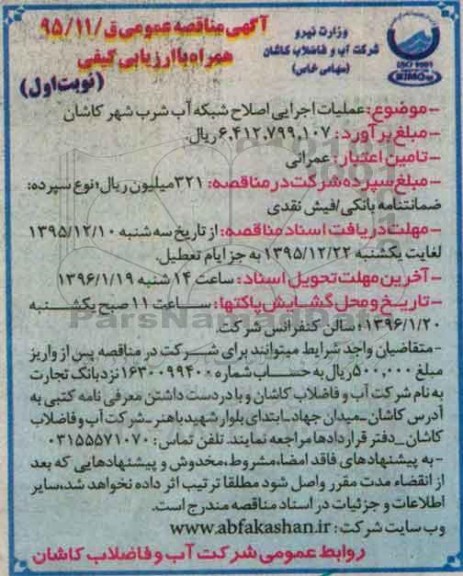 آگهی مناقصه عمومی ق/۹۵/۱۱
همراه با ارزیابی کیفی
(نوبت اول)
وزارت نیرو
شرکت آب و فاضلاب کاشان
(سهامی خاص)
ISO 9001
- موضوع: عملیات اجرایی اصلاح شبکه آب شرب شهر کاشان
- مبلغ برآورد: ۶,۴۱۲,۷۹۹,۱۰۷ ریال.
- تامین اعتبار: عمرانی
- مبلغ سپرده شرکت در مناقصه: ۳۲۱ میلیون ریال؛ نوع سپرده:
ضمانتنامه بانکی/فیش نقدی
- مهلت دریافت اسناد مناقصه: از تاریخ سه شنبه ۱۳۹۵/۱۲/۱۰
لغایت یکشنبه ۱۳۹۵/۱۲/۲۲ به جز ایام تعطیل.
- آخرین مهلت تحویل اسناد: ساعت ۱۴ شنبه ۱۳۹۶/۱/۱۹
- تاریخ و محل گشایش پاکتها: ساعت ۱۱ صبح یکشنبه
۱۳۹۶/۱/۲۰؛ سالن کنفرانس شرکت.
- متقاضیان واجد شرایط میتوانند برای شرکت در مناقصه پس از واریز
مبلغ ۵۰۰,۰۰۰ ریال به حساب شماره ۱۶۳۰۰۹۹۴۰۰ نزد بانک تجارت
به نام شرکت آب و فاضلاب کاشان و با در دست داشتن معرفی نامه کتبی به
آدرس کاشان_میدان جهاد_ابتدای بلوار شهید باهنر_شرکت آب و فاضلاب
کاشان_دفتر قراردادها مراجعه نمایند. تلفن تماس: ۰۳۱۵۵۵۷۱۰۷۰
- به پیشنهادهای فاقد امضاء، مشروط، مخدوش و پیشنهادهایی که بعد
از انقضاء مدت مقرر واصل شود مطلقا ترتیب اثر داده نخواهد شد، سایر
اطلاعات و جزئیات در اسناد مناقصه مندرج است.
وب سایت شرکت: www.abfakashan.ir
روابط عمومی شرکت آب و فاضلاب کاشان